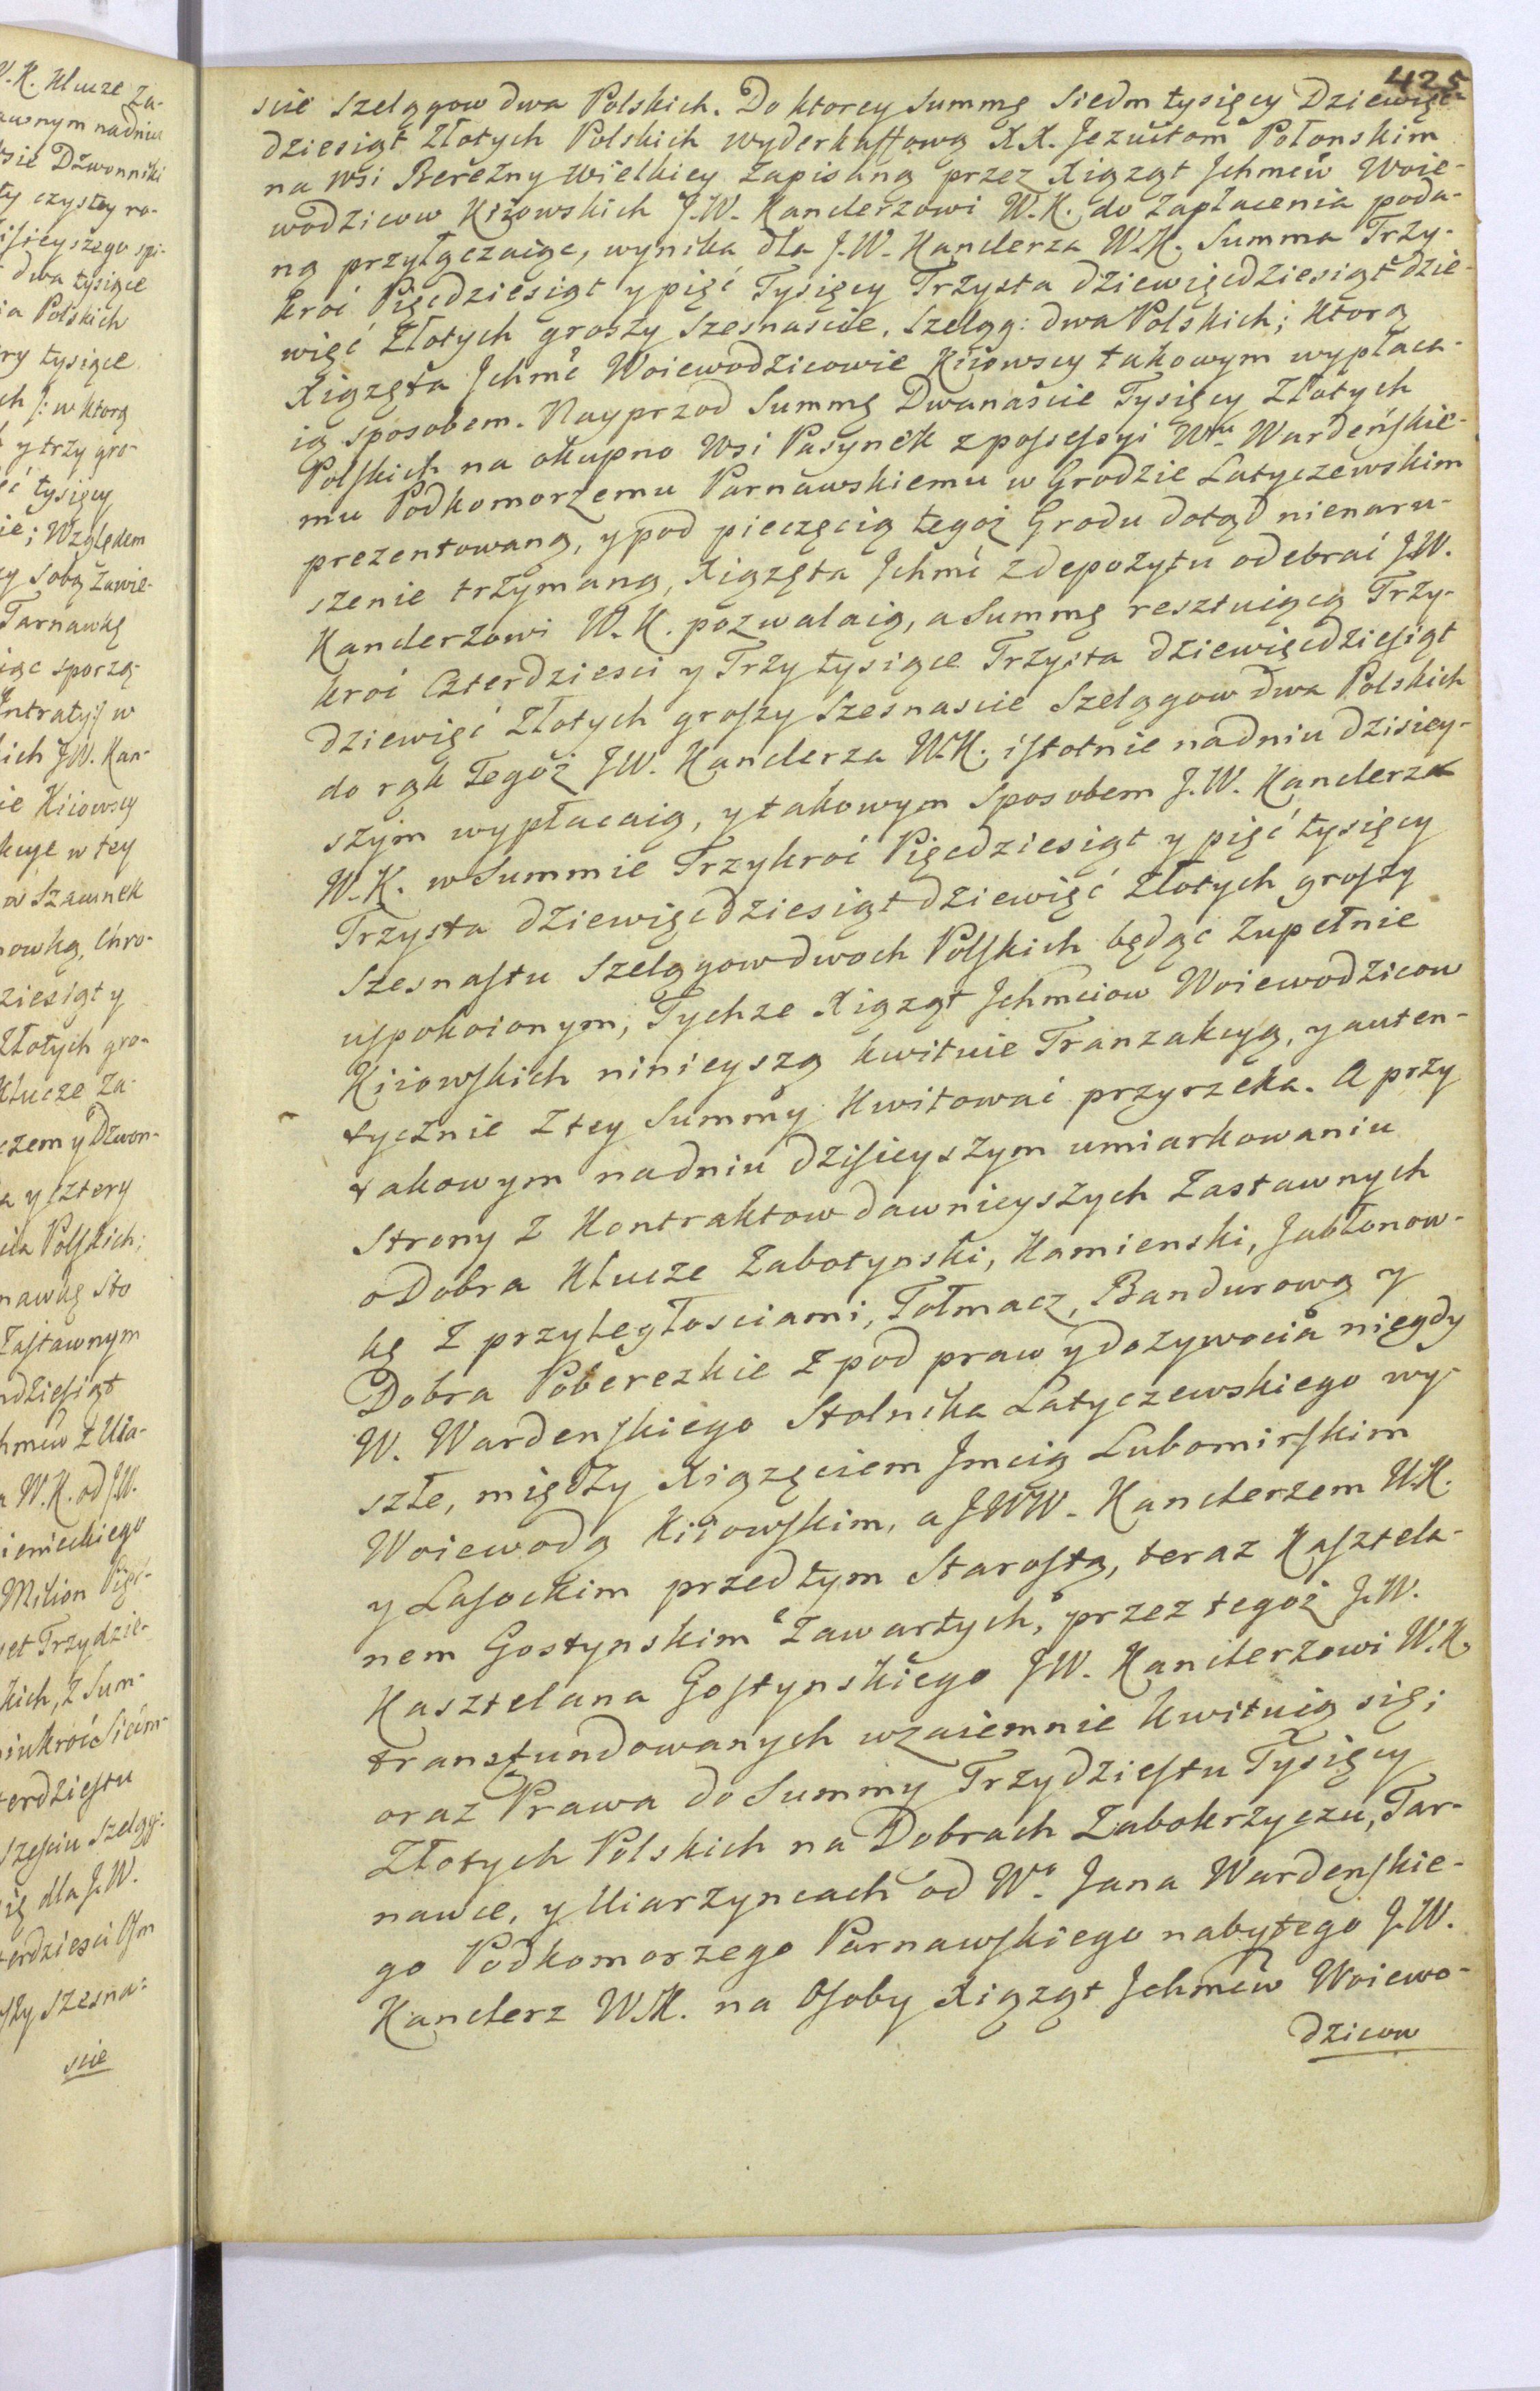 V.K. Klucze Za-
awnym nadniu
sie Dzwonniki
ty czystey ro-
isieyszego spi-
dwa tysiące
ia Polskich
ry tysiące
ch /: w ktorą
y trzy gro-
ć tysięcy
ie; Względem
y sobą zawie-
Tarnawkę
iąc sporzą-
Intraty:/ w
ich JW. Kan-
ie Kiiowscy
kcye w tey
w Szacunek
nowką, Chro-
ziesiąt y
Złotych gro-
Klucze Za-
czem y Dzwon-
a y cztery
ia Polskich;
nawkę Sto
Zastawnym
ndziesiąt
hmciw z Uła-
a W.K. od J.W.
ienieckiego
Milion Pięć-
et Trzydzie-
kich, z Sum-
iukroć Siedm-
erdziestu
szesciu szelągg:
ię dla J.W.
erdziesci Osm
szy szesna:
scie
425
scie Szelągow dwa Polskich. Do ktorey Summę Siedm tysięcy Dziewięć-
dziesiąt Złotych Polskich wyderkaffową XX. Jezuitom Połonskim
na Wsi Berezny Wielkiey zapisaną przez Xiążąt Jchmciw Woie-
wodzicow Kiiowskich J.W. Kanclerzowi W.K. do zapłacenia poda-
ną przyłączaiąc, wynika dla J.W. Kanclerza W.K. Summa Trzy-
kroć Pięcdziesiąt y pięć Tysięcy Trzysta dziewięcdziesiąt dzie-
więć Złotych groszy Szesnascie, Szeląg: dwa Polskich; Ktorą
Xiążęta Jchmć Woiewodzicowie Kiiowscy takowym wypłaca-
ią sposobem. Nayprzod Summę Dwanascie Tysięcy Złotych
Polskich na okupno Wsi Pasynek z possessyi Wmu Wardeńskie-
mu Podkomorzemu Parnawskiemu w Grodzie Latyczewskim
prezentowaną, y pod pieczęcią tegoż Grodu dotąd nienaru-
szenie trzymaną, Xiążęta Jchmć z depozytu odebrać J.W.
Kanclerzowi W.K. pozwalaią, a Summę resztuiącą Trzy-
kroć Czterdziesci y Trzy tysiące Trzysta dziewięcdziesiąt
dziewięć Złotych groszy Szesnascie Szelągow dwa Polskich
do rąk Tegoż JW. Kanclerza W.K. istotnie nadniu dzisiey-
szym wypłacaią, y takowym Sposobem J.W. Kanclerza
W.K. w Summie Trzykroć Pięcdziesiąt y pięć tysięcy
Trzysta dziewięcdziesiąt dziewięć Złotych groszy
Szesnastu Szelągow dwoch Polskich będąc zupełnie
uspokoionym, Tychze Xiążąt Jchmciow Woiewodzicow
Kiiowskich ninieyszą kwituie Tranzakcyą, y auten-
tycznie z tey Summy kwitować przyrzeka. A przy
takowym nadniu dzisieyszym umiarkowaniu
Strony z Kontraktow dawnieyszych Zastawnych
o Dobra Klucze Zabotynski, Kamienski, Jabłonow-
kę z przyległosciami, Tołmacz, Bandurową y
Dobra Poberezkie z pod praw y dożywocia niegdy
W. Wardenskiego Stolnika Latyczewskiego wy-
szłe, między Xiążęciem Jmcią Lubomirskim
Woiewodą Kiiowskim, a JWW. Kanclerzem W.K.
y Lasockim przedtym Starostą, teraz Kasztela-
nem Gostynskim zawartych, przez tegoż J.W.
Kasztelana Gostynskiego JW. Kanclerzowi W.K.
transfundowanych wzaiemnie kwituią się;
oraz Prawa do Summy Trzydziestu Tysięcy
Złotych Polskich na Dobrach Zabokrzyczu, Tar-
nawce, y Uiarzyncach od Wo Jana Wardenskie-
go Podkomorzego Parnawskiego nabytego J.W.
Kanclerz W.K. na Osoby Xiążąt Jchmciw Woiewo-
dzicow